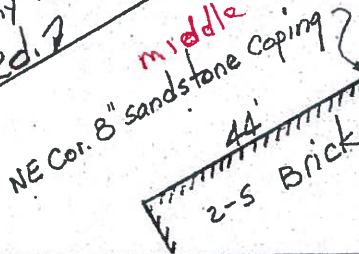 ed.?
middle
NE Cor. 8" sandstone Coping
44'
2-S Brick